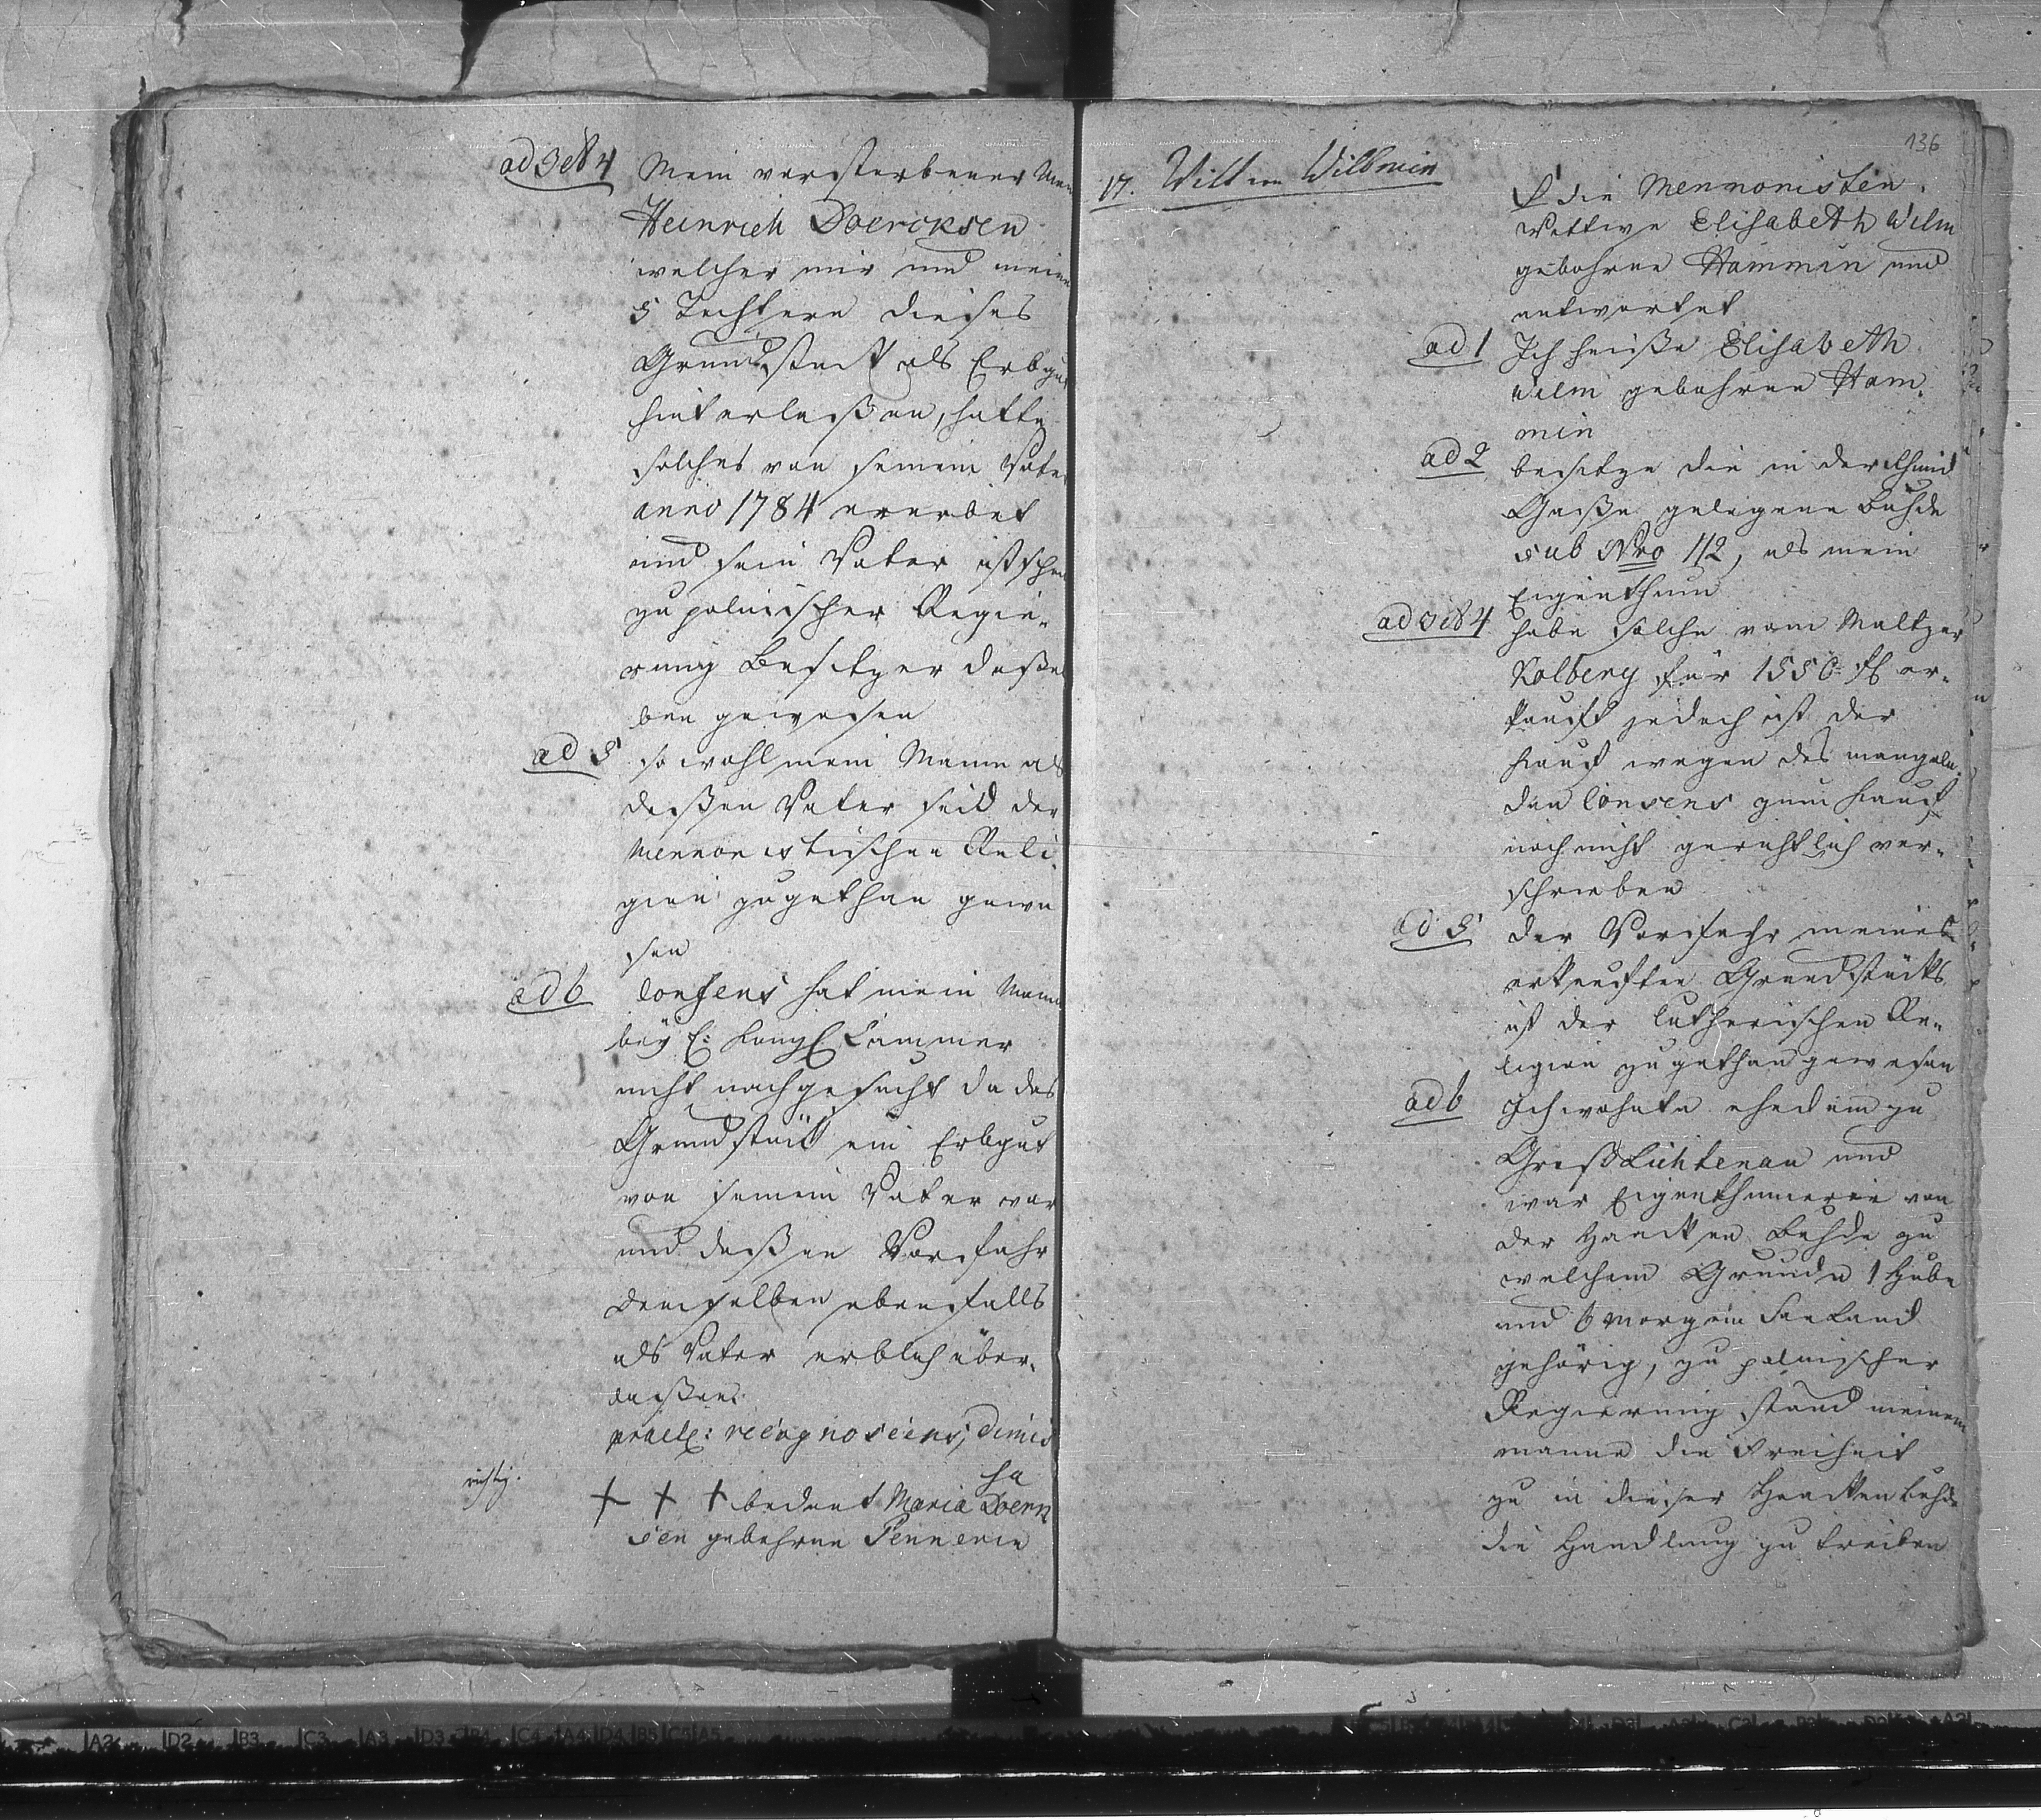 ad 3 et 4 Mein verstorbener Man
Heinrich Doercksen
welcher mir und meinen
5 Tochtern dieses
Grundstück als Erbgut
hinterlaßen, hatte
solches von seinem Vater
anno 1784 ererbet
und sein Vater ist schon
zu polnischer Regie-
rung Besitzer deßel
ben gewesen
ad 5 so wohl mein Mann als
deßen Vater seid der
Mennonistischen Reli
gion zugethan gewe
sen
ad 6 Consens hat mein Mann
bey E: Königl Cammer
nicht nachgesucht da das
Grundstück ein Erbgut
von seinem Vater war
und deßen Vorfahr
demselben ebenfalls
als Vater erblich über-
laßen.
prael: recognoscens, dimis
sa
richtig. + + + bedeut Maria Doerck
sen gebohrne Pennerin
136
17. Wittwe Wilmin
die Mennonisten
Wittwe Elisabeth Wilm
gebohrne Hammin und
antwortet
ad 1 Ich heiße Elisabeth
Wilm gebohrne Ham
min
ad 2 besitze die in der Schmid
Gaße gelegene Buhde
sub Nro 112, als mein
Eigenthum
ad 3 et 4 habe solche vom Maltzer
Kolberg für 1550 fl er-
kauft jedoch ist der
Kauf wegen des mangeln
den Consens zum Kauf
noch nicht gerichtlich ver-
schrieben
ad 5 der Vorfahr meines
erkauften Grundstücks
ist der lutherischen Re-
ligion zugethan gewesen
ad 6 Ich wohnte ehedem zu
Groß Lichtenau und
war Eigenthümerin von
der Haacken Buhde zu
welchem Grunde 1 Hube
und 6 Morgen Land
gehörig, zu polnischer
Regierung stand meinem
Manne die Freiheit
zu in dieser Haacken Buhde
die Handlung zu treiben